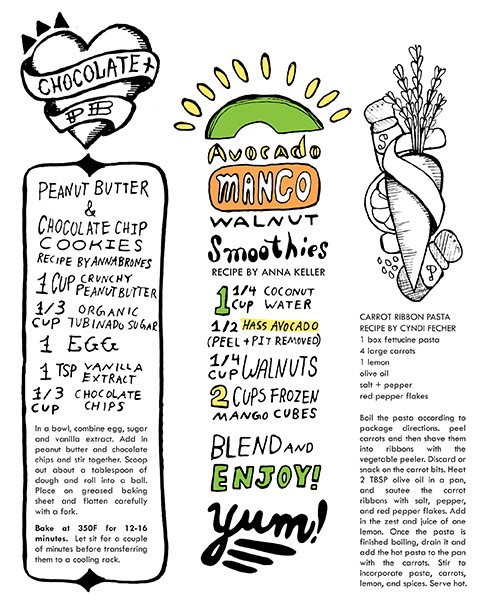 CHOCOLATE +
PB
PEANUT BUTTER
&
CHOCOLATE CHIP
COOKIES
RECIPE BY ANNA BRONES
1 CUP CRUNCHY
PEANUT BUTTER
1/3 ORGANIC
CUP TUBINADO SUGAR
1 EGG
1 TSP VANILLA
EXTRACT
1/3 CHOCOLATE
CUP CHIPS
In a bowl, combine egg, sugar
and vanilla extract. Add in
peanut butter and chocolate
chips and stir together. Scoop
out about a tablespoon of
dough and roll into a ball.
Place on greased baking
sheet and flatten carefully
with a fork.
Bake at 350F for 12-16
minutes. Let sit for a couple
of minutes before transferring
them to a cooling rack.
Avocado
MANGO
WALNUT
Smoothies
RECIPE BY ANNA KELLER
1 1/4 COCONUT
CUP WATER
1/2 HASS AVOCADO
(PEEL + PIT REMOVED)
1/4 CUP WALNUTS
2 CUPS FROZEN
MANGO CUBES
BLEND AND
ENJOY!
yum!
S
P
CARROT RIBBON PASTA
RECIPE BY CYNDI FECHER
1 box fettucine pasta
4 large carrots
1 lemon
olive oil
salt + pepper
red pepper flakes
Boil the pasta according to
package directions. peel
carrots and then shave them
into ribbons with the
vegetable peeler. Discard or
snack on the carrot bits. Heet
2 TBSP olive oil in a pan,
and sautee the carrot
ribbons with salt, pepper,
and red pepper flakes. Add
in the zest and juice of one
lemon. Once the pasta is
finished boiling, drain it and
add the hot pasta to the pan
with the carrots. Stir to
incorporate pasta, carrots,
lemon, and spices. Serve hot.